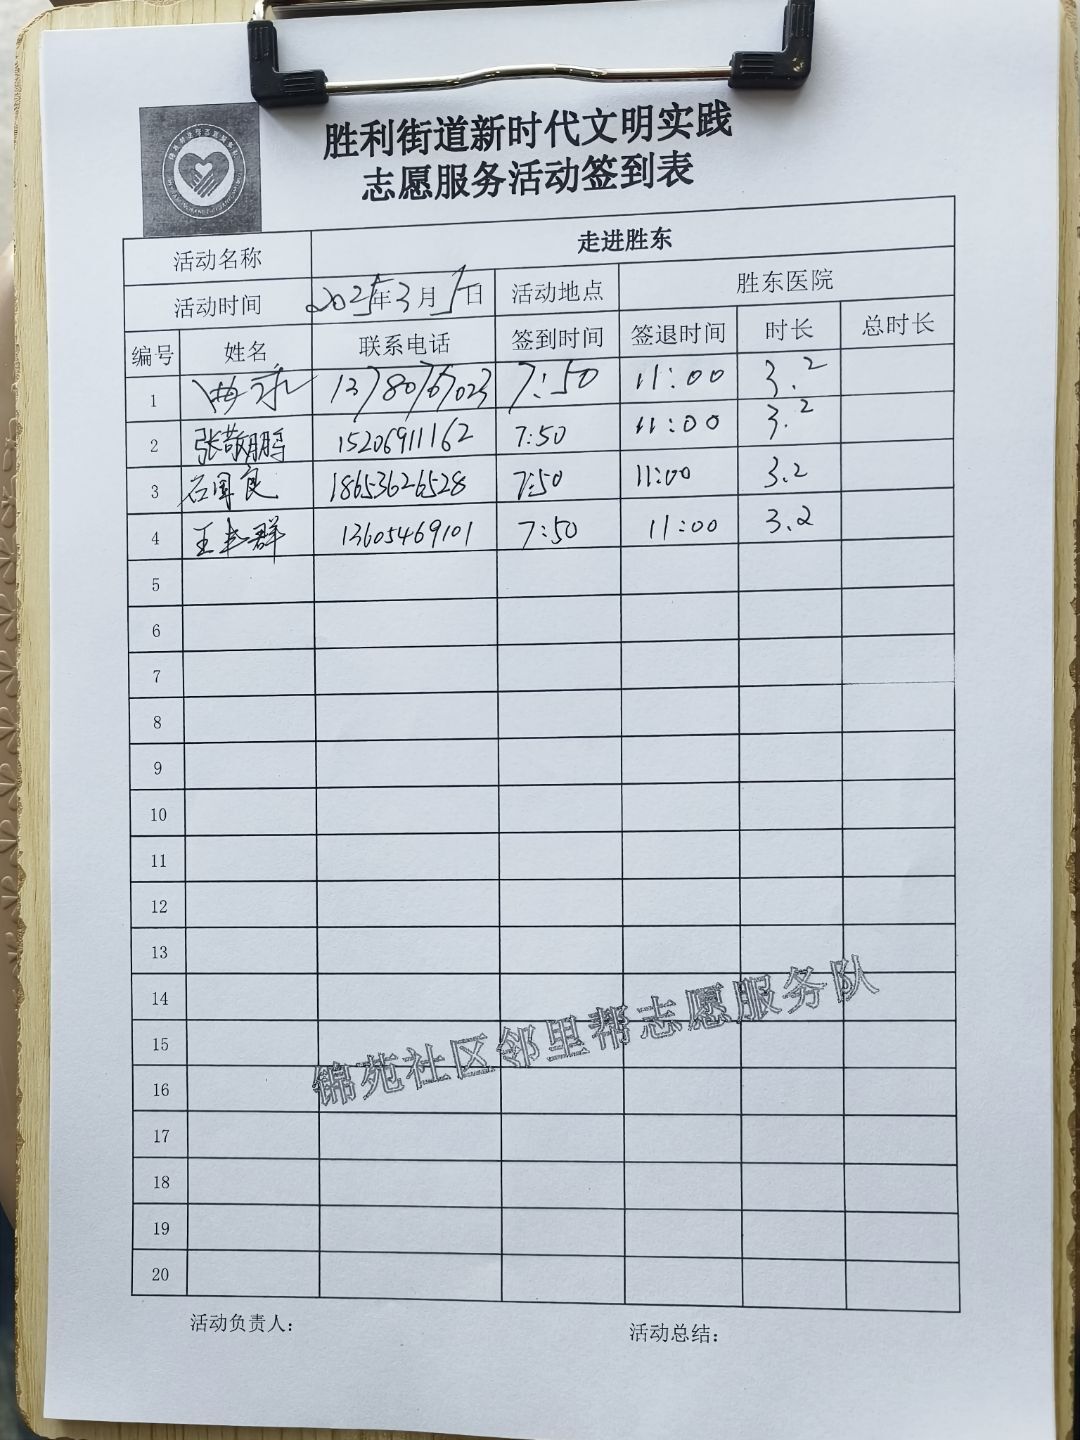 胜利街道新时代文明实践
志愿服务活动签到表
活动名称 走进胜东
活动时间 2025年3月1日 活动地点 胜东医院
编号 姓名 联系电话 签到时间 签退时间 时长 总时长
1 13780767023 7:50 11:00 3.2
2 张敬鹏 15206911162 7:50 11:00 3.2
3 石国良 18653626528 7:50 11:00 3.2
4 王 群 13605469101 7:50 11:00 3.2
5
6
7
8
9
10
11
12
13
14
15
16
17
18
19
20
锦苑社区邻里帮志愿服务队
活动负责人： 活动总结：